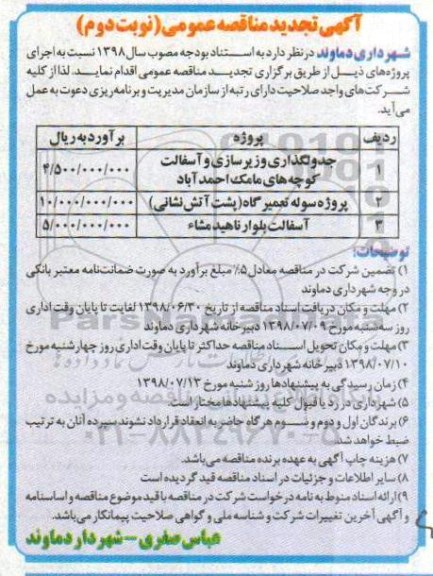 آگهی تجدید مناقصه عمومی (نوبت دوم)
شهرداری دماوند در نظر دارد به استناد بودجه مصوب سال ۱۳۹۸ نسبت به اجرای
پروژه‌های ذیل از طریق برگزاری تجدید مناقصه عمومی اقدام نماید. لذا از کلیه
شرکت‌های واجد صلاحیت دارای رتبه از سازمان مدیریت و برنامه‌ریزی دعوت به عمل
می‌آید.
ردیف پروژه برآورد به ریال
۱ جدولگذاری و زیرسازی و آسفالت کوچه‌های مامک احمدآباد ۴/۵۰۰/۰۰۰/۰۰۰
۲ پروژه سوله تعمیرگاه (پشت آتش نشانی) ۱۰/۰۰۰/۰۰۰/۰۰۰
۳ آسفالت بلوار ناهید مشاء ۵/۰۰۰/۰۰۰/۰۰۰
توضیحات:
۱) تضمین شرکت در مناقصه معادل ۵٪ مبلغ برآورد به صورت ضمانت‌نامه معتبر بانکی
در وجه شهرداری دماوند
۲) مهلت و مکان دریافت اسناد مناقصه از تاریخ ۱۳۹۸/۰۶/۳۰ لغایت تا پایان وقت اداری
روز سه‌شنبه مورخ ۱۳۹۸/۰۷/۰۹ دبیرخانه شهرداری دماوند
۳) مهلت و مکان تحویل اسناد مناقصه حداکثر تا پایان وقت اداری روز چهارشنبه مورخ
۱۳۹۸/۰۷/۱۰ دبیرخانه شهرداری دماوند
۴) زمان رسیدگی به پیشنهادها روز شنبه مورخ ۱۳۹۸/۰۷/۱۳
۵) شهرداری در رد یا قبول کلیه پیشنهادها مختار است.
۶) برندگان اول و دوم و سوم هرگاه حاضر به انعقاد قرارداد نشوند سپرده آنان به ترتیب
ضبط خواهد شد.
۷) هزینه چاپ آگهی به عهده برنده مناقصه می‌باشد.
۸) سایر اطلاعات و جزئیات در اسناد مناقصه قید گردیده است
۹) ارائه اسناد منوط به نامه درخواست شرکت در مناقصه با قید موضوع مناقصه و اساسنامه
و آگهی آخرین تغییرات شرکت و شناسه ملی و گواهی صلاحیت پیمانکار می‌باشد.
عباس صفری - شهردار دماوند
۰۲۱-۸۸۳۴۹۶۷۰-۵